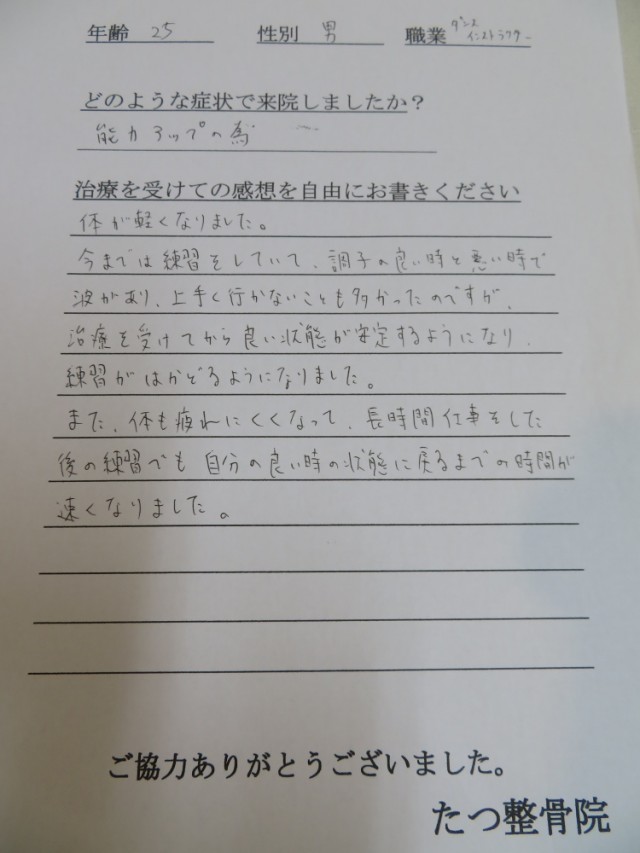 年齢 25 性別 男 職業 ダンスインストラクター
どのような症状で来院しましたか？
能力アップの為
治療を受けての感想を自由にお書きください
体が軽くなりました。
今までは練習をしていて、調子の良い時と悪い時で
波があり、上手く行かないことも多かったのですが、
治療を受けてから良い状態が安定するようになり、
練習がはかどるようになりました。
また、体も疲れにくくなって、長時間仕事をした
後の練習でも自分の良い時の状態に戻るまでの時間が
速くなりました。
ご協力ありがとうございました。
たつ整骨院